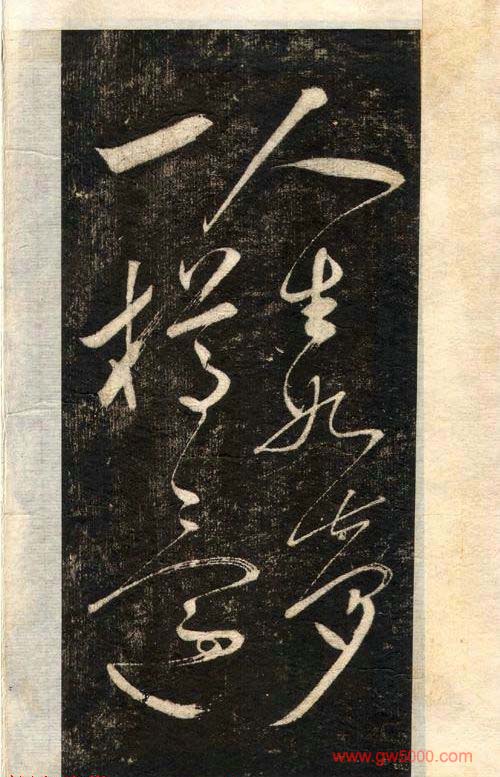 人生如夢
一樽還
www.gw5000.com